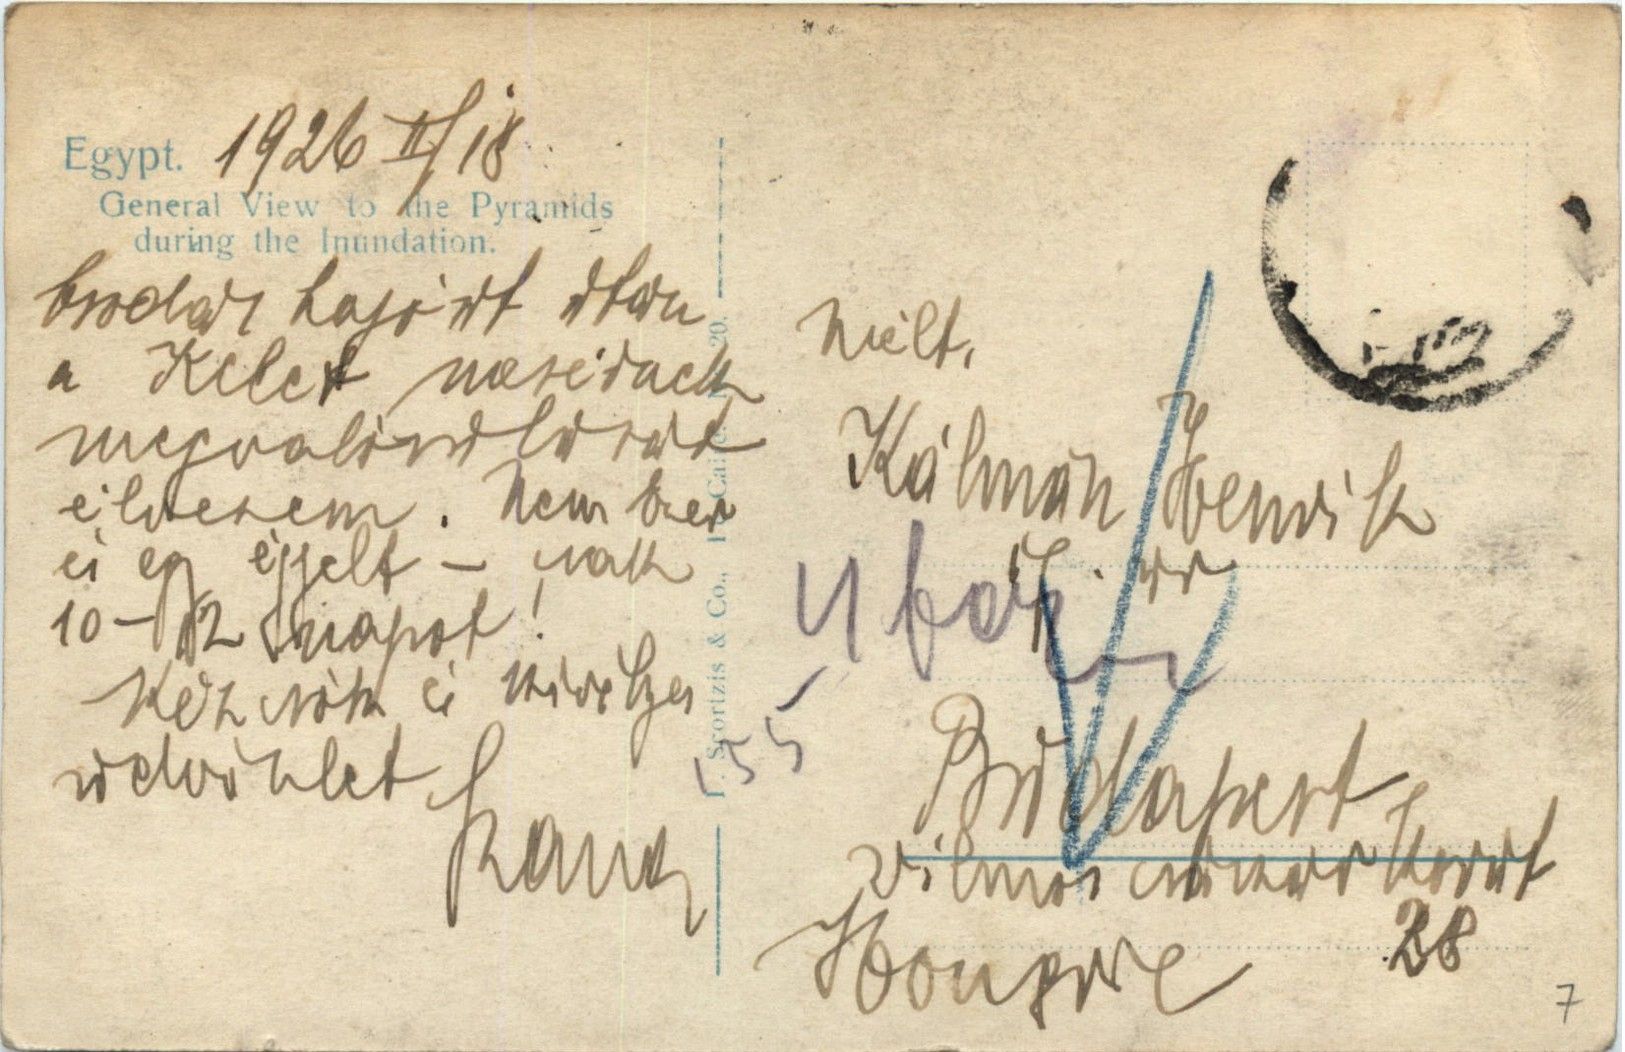 Egypt. 1926 II/18
General View to the Pyramids
during the Inundation.
csodás hajóút után
a Kelet meséinek
megvalósulását
élvezem. Nem
és egy éjjelt – sok
10–12 napot!
Kézcsók és
üdvözlet
Nielt.
Kálmán Henrik
úr
Budapest
Vilmos császár út
28
Hongrie
155
& Co.,
7